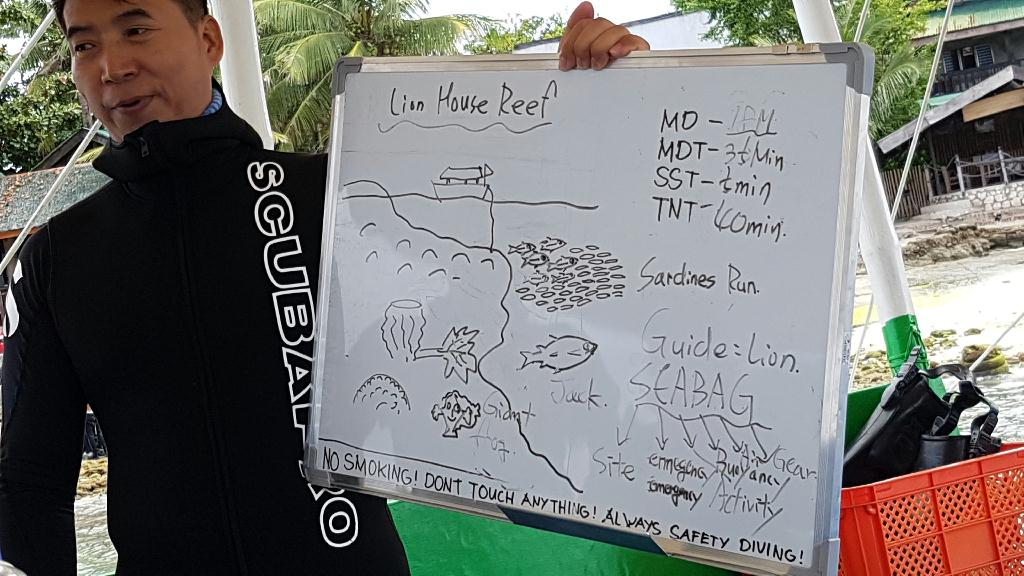 Lion House Reef
MD -
MDT- 35Min.
SST- 5min
TNT- 40min.
Sardines Run.
Guide: Lion.
SEABAG
Jack.
Giant
Site emergency Buoyancy Air Gear
Activity
NO SMOKING! DONT TOUCH ANYTHING! ALWAYS SAFETY DIVING!
SCUBAPRO